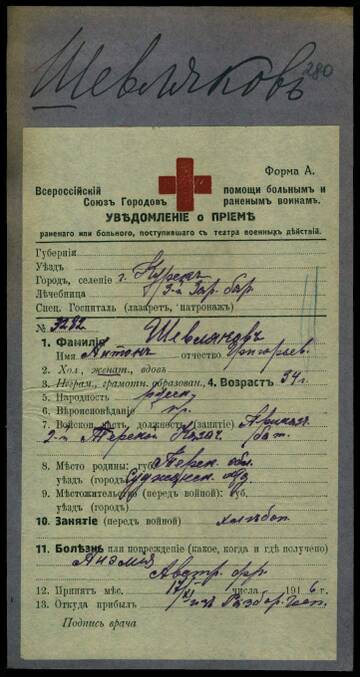 Шевляковъ
280
Форма А.
Всероссійскій Союзъ Городовъ помощи больнымъ и раненымъ воинамъ.
УВѢДОМЛЕНІЕ о ПРІЕМѢ
раненаго или больного, поступившаго съ театра военныхъ дѣйствій.
Губернія
Уѣздъ
Городъ, селеніе г. Курскъ
Лѣчебница 3-й Зар. бар.
Спец. Госпиталь (лазаретъ, патронажъ)
№ 3292
1. Фамилія Шевляковъ
Имя Антонъ отчество Григорьев.
2. Хол., женат., вдовъ
3. Неграм., грамотн. образован., 4. Возрастъ 34 г.
5. Народность русск.
6. Вѣроисповѣданіе пр.
7. Войсков. часть, должность (занятіе)
2-й Терской Казач. бат.
8. Мѣсто родины: губ. Терск. обл.
уѣздъ (городъ)
9. Мѣстожительство (передъ войной): губ.
уѣздъ (городъ)
10. Занятіе (передъ войной) хлѣбоп.
11. Болѣзнь или поврежденіе (какое, когда и гдѣ получено)
Анэмія
Австр. фр.
12. Принятъ мѣс. 17/XI числа 1916 г.
13. Откуда прибылъ Разбор. Госп.
Подпись врача